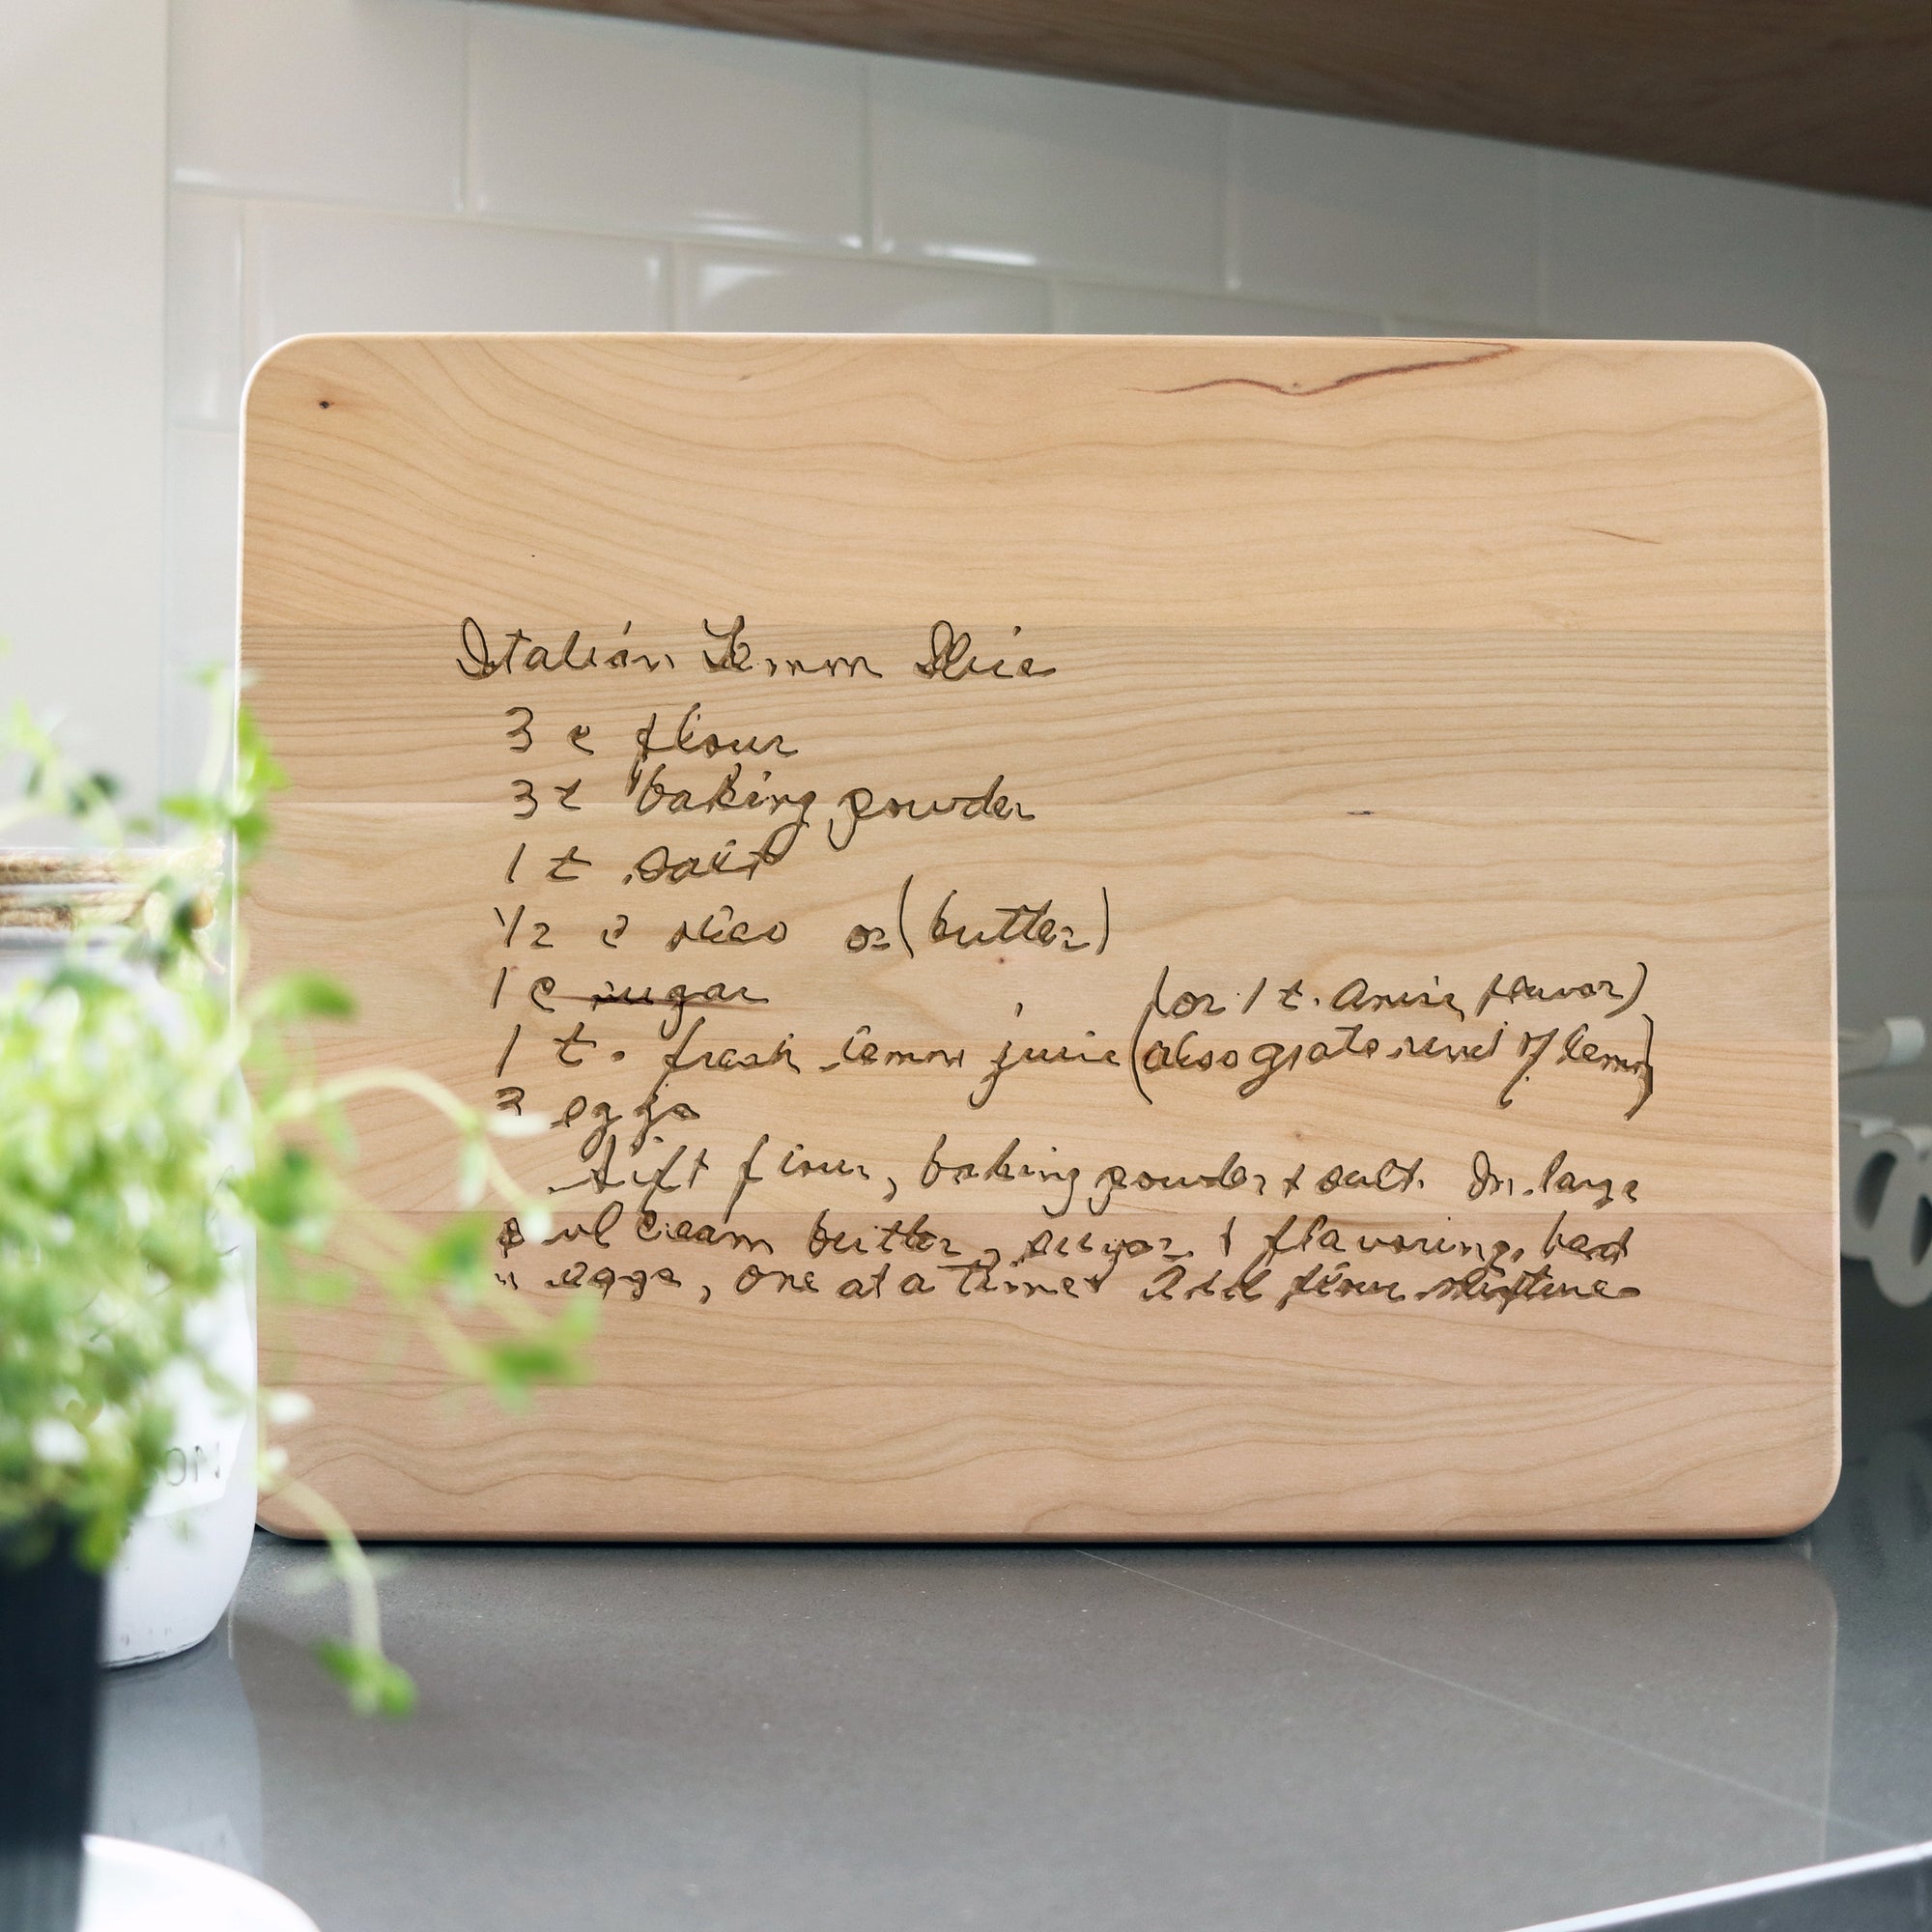 Italian Lemon Slice
3 c flour
3 t baking powder
1 t salt
1/2 c or (butter)
1 c sugar
(or 1 t. Anise flavor)
1 t. fresh lemon juice (also grate rind of lemon)
3 eggs
Sift flour, baking powder + salt. In large
bowl cream butter, sugar & flavoring,
eggs, one at a time. Add flour mixture